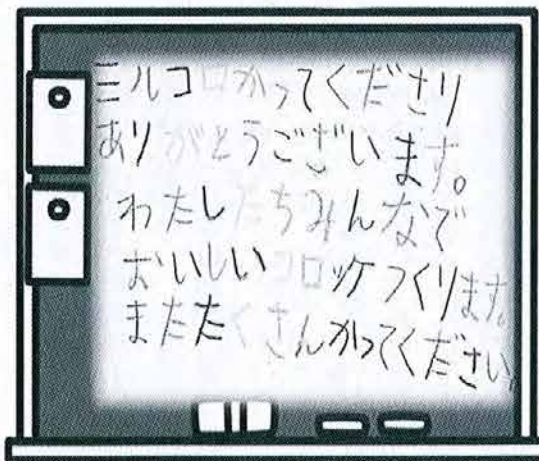 ミルコロかってくださり
ありがとうございます。
わたしたちみんなで
おいしいコロッケつくります。
またたくさんかってください。